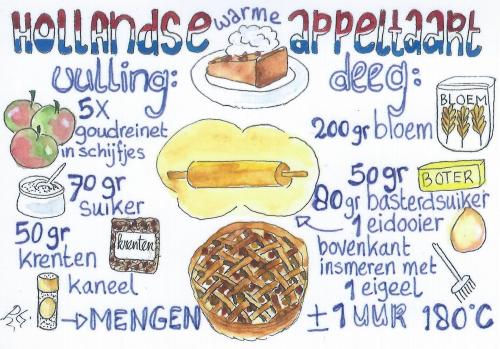 HOLLANDSE warme appeltaart
vulling:
5x
goudreinet
in schijfjes
70 gr
suiker
50 gr
krenten
krenten
kaneel
→ MENGEN
deeg:
BLOEM
200 gr bloem
50 gr
BOTER
80 gr basterdsuiker
1 eidooier
bovenkant
insmeren met
1 eigeel
± 1 UUR 180°C